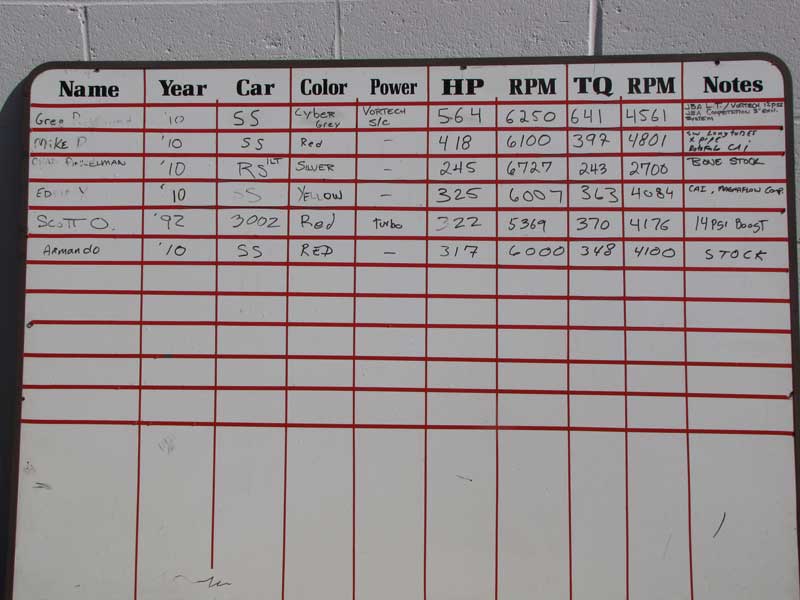 Name Year Car Color Power HP RPM TQ RPM Notes
Greg '10 SS Cyber Grey Vortech S/C 564 6250 641 4561 JBA L.T./Vortech JBA Competition 3" Exh. System
Mike P '10 SS Red - 418 6100 397 4801 SW Longtubes X pipe CAI
'10 RS 1LT Silver - 245 6727 243 2700 Bone Stock
Ed '10 SS Yellow - 325 6007 363 4084 CAI, Magnaflow
Scott O. '92 300Z Red Turbo 322 5369 370 4176 14 PSI Boost
Armando '10 SS RED - 317 6000 348 4100 STOCK